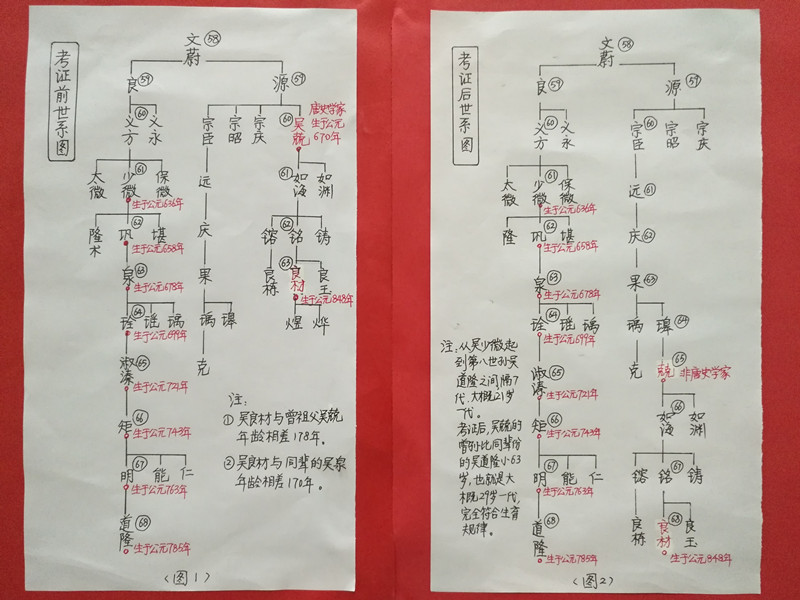 考证前世系图
文蔚 58
良 59
源 59
义方 60
义永
宗臣
宗昭
宗庆
60 吴兢
唐史学家
生于公元
670年
太微
61 少微
保微
生于公元636年
远
61 如海
如渊
隆术
62 巩
堪
生于公元658年
庆
镕
62 铭
铸
泉 63
生于公元678年
果
良栋
63 良材
良玉
生于公元848年
诠 64
谣
瑀
生于公元699年
瑀
璋
煜
烨
淑溱 65
生于公元721年
克
矩 66
生于公元743年
明 67
能
仁
生于公元763年
道隆 68
生于公元785年
注:
① 吴良材与曾祖父吴兢
年龄相差178年。
② 吴良材与同辈的吴泉
年龄相差170年。
(图1)
考证后世系图
文蔚 58
良 59
源 59
义方 60
义永
宗臣 60
宗昭
宗庆
太微
61 少微
保微
生于公元636年
远 61
隆
62 巩
堪
生于公元658年
庆 62
泉 63
生于公元678年
果 63
诠 64
谣
瑀
生于公元699年
瑀
璋 64
淑溱 65
生于公元721年
克
兢 65
非唐史学家
矩 66
生于公元743年
如海 66
如渊
明 67
能
仁
生于公元763年
镕
铭 67
铸
道隆 68
生于公元785年
良栋
良材 68
良玉
生于公元848年
注:从吴少微起
到第八世孙吴
道隆之间隔7
代,大概21岁
一代。
考证后,吴兢的
曾孙比同辈份
的吴道隆小63
岁,也就是大
概29岁一代,
完全符合生育
规律。
(图2)